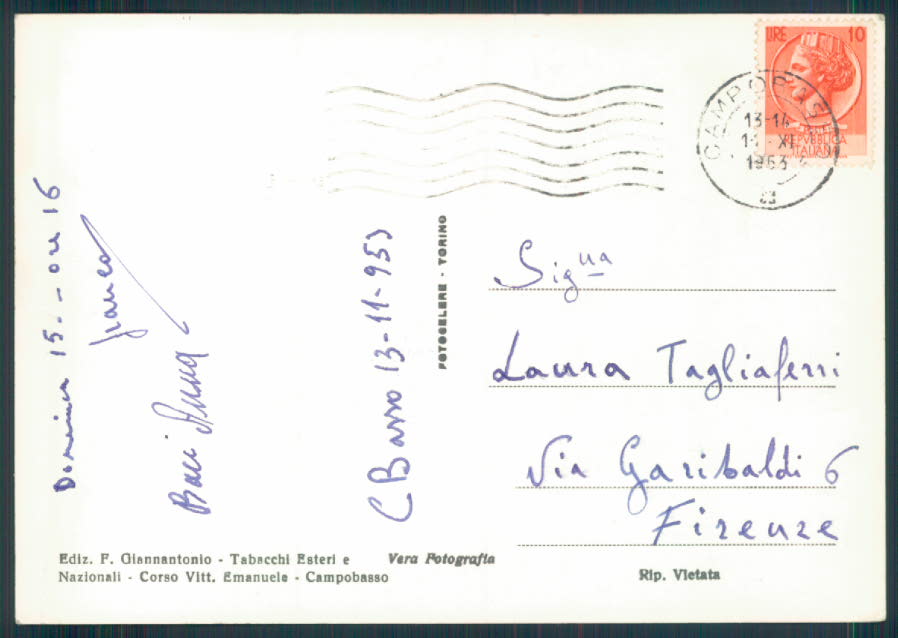 LIRE 10
REPVBBLICA
ITALIANA
CAMPOBAS
13-14
1963
Domenica 15.- ore 16
Franco
Baci Anna
CBasso 13-11-953
FOTOCELERE - TORINO
Sig.na
Laura Tagliaferri
Via Garibaldi 6
Firenze
Ediz. F. Giannantonio - Tabacchi Esteri e
Nazionali - Corso Vitt. Emanuele - Campobasso
Vera Fotografia
Rip. Vietata